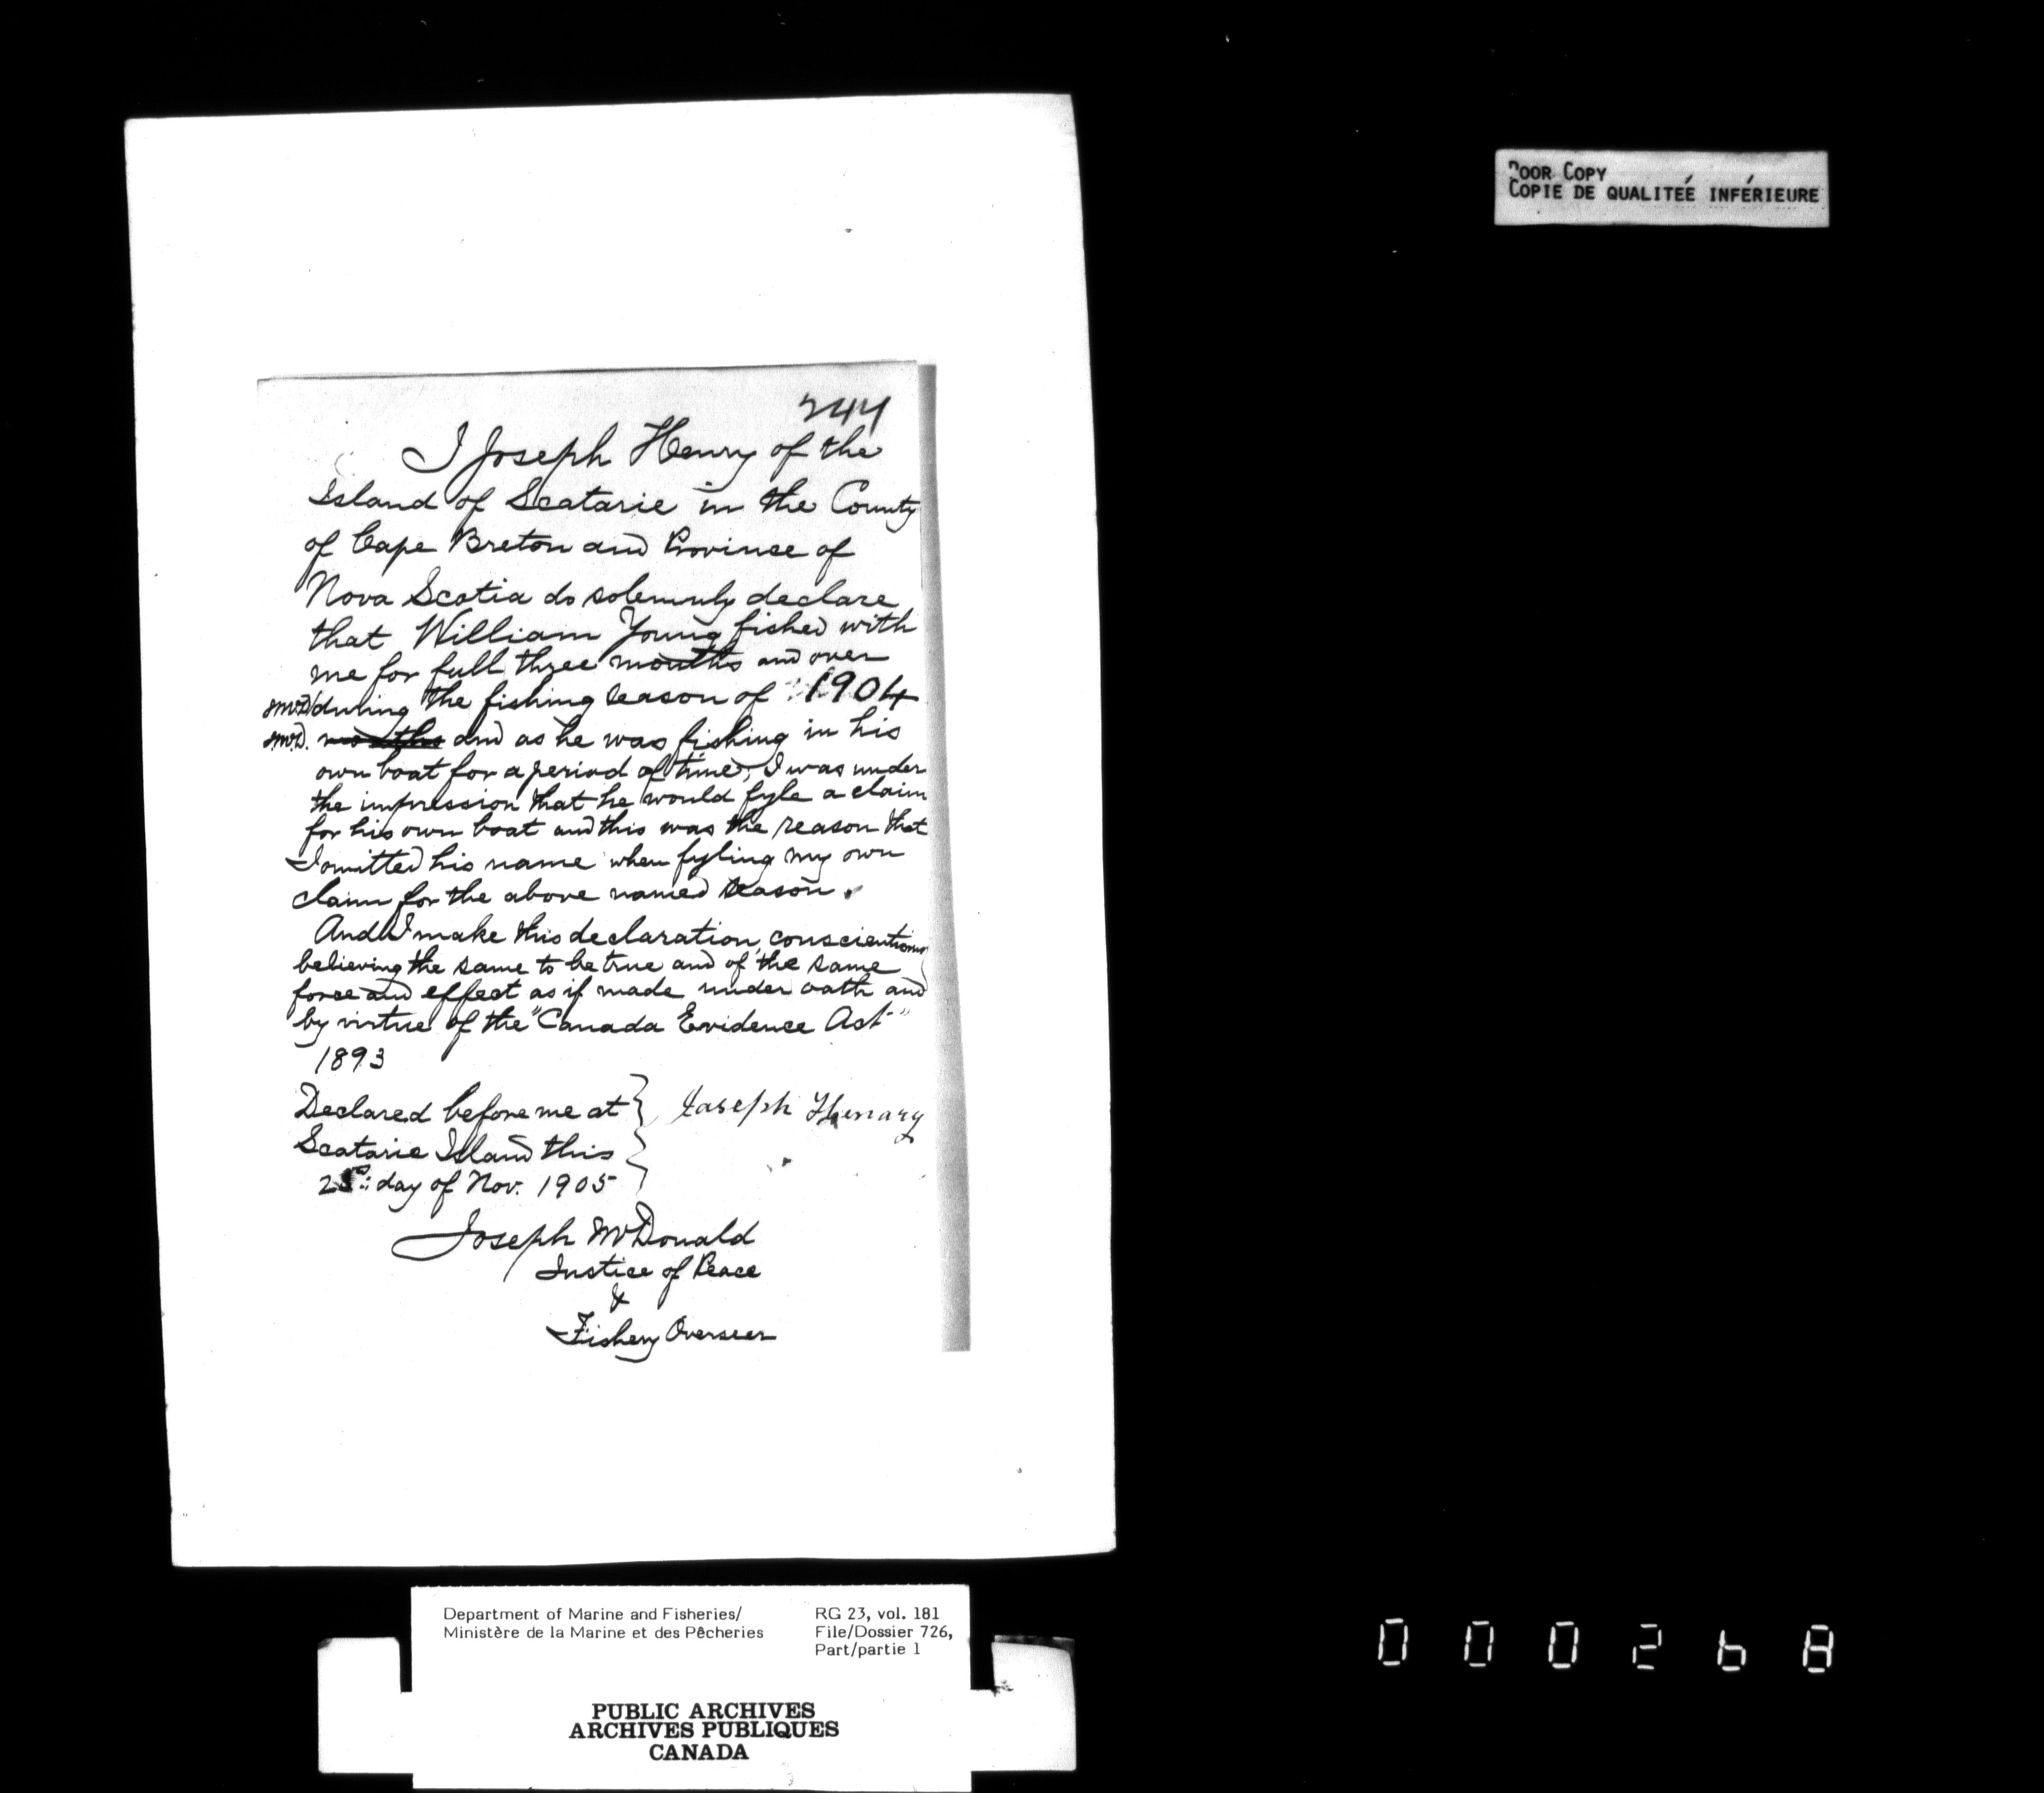 244
I Joseph Henry of the
Island of Scatarie in the County
of Cape Breton and Province of
Nova Scotia do solemnly declare
that William Young fished with
me for full three months and over
JMcD during the fishing season of 1904
JMcD. months and as he was fishing in his
own boat for a period of time, I was under
the impression that he would fyle a claim
for his own boat and this was the reason that
I omitted his name when fyling my own
claim for the above named season.
And I make this declaration, conscientiously
believing the same to be true and of the same
force and effect as if made under oath and
by virtue of the "Canada Evidence Act"
1893
Declared before me at
Scatarie Island this
day of Nov. 1905
Joseph Henary
Joseph McDonald
Justice of Peace
&
Fishery Overseer
POOR COPY
COPIE DE QUALITEÉ INFÉRIEURE
Department of Marine and Fisheries/
Ministère de la Marine et des Pêcheries
RG 23, vol. 181
File/Dossier 726,
Part/partie 1
PUBLIC ARCHIVES
ARCHIVES PUBLIQUES
CANADA
000268